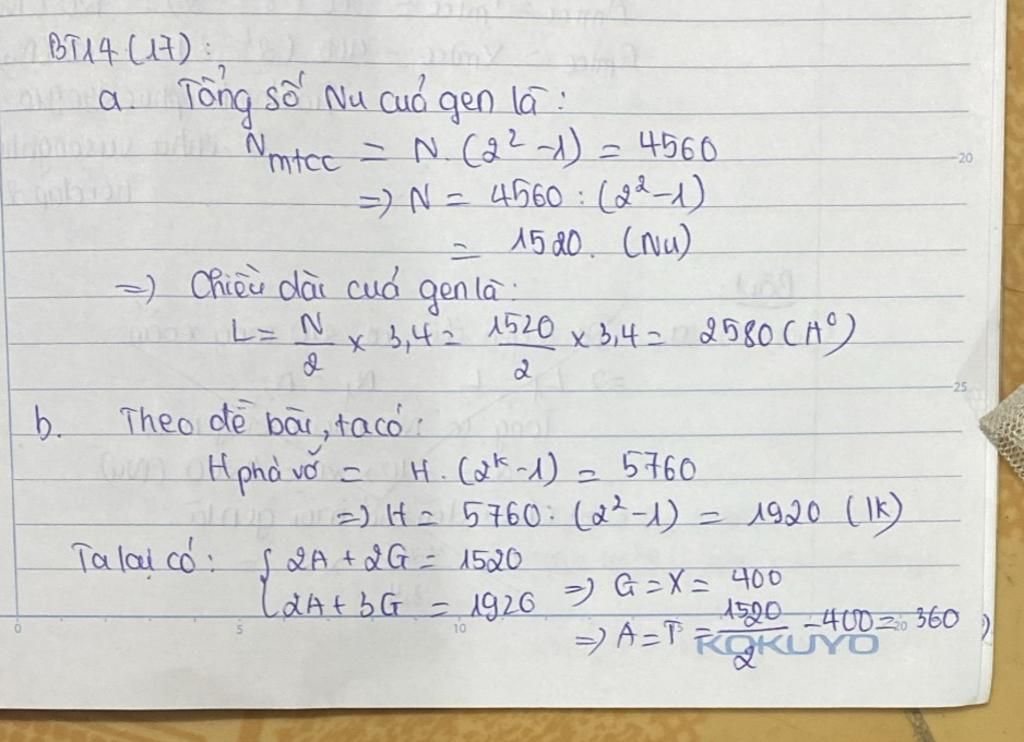 BT14 (17):
a. Tổng số Nu cuả gen là:
N mtcc = N. (2² - 1) = 4560
=> N = 4560 : (2² - 1)
= 1520. (Nu)
20
=> Chiều dài cuả gen là:
L = N/2 x 3,4 = 1520/2 x 3,4 = 2580 (A⁰)
25
b. Theo đề bài, ta có:
H phá vỡ = H. (2ᵏ - 1) = 5760
=> H = 5760 : (2² - 1) = 1920 (lk)
Ta lại có: { 2A + 2G = 1520
2A + 3G = 1920 => G = X = 400
=> A = T = 1520/2 - 400 = 360
0 5 10 20
KOKUYO